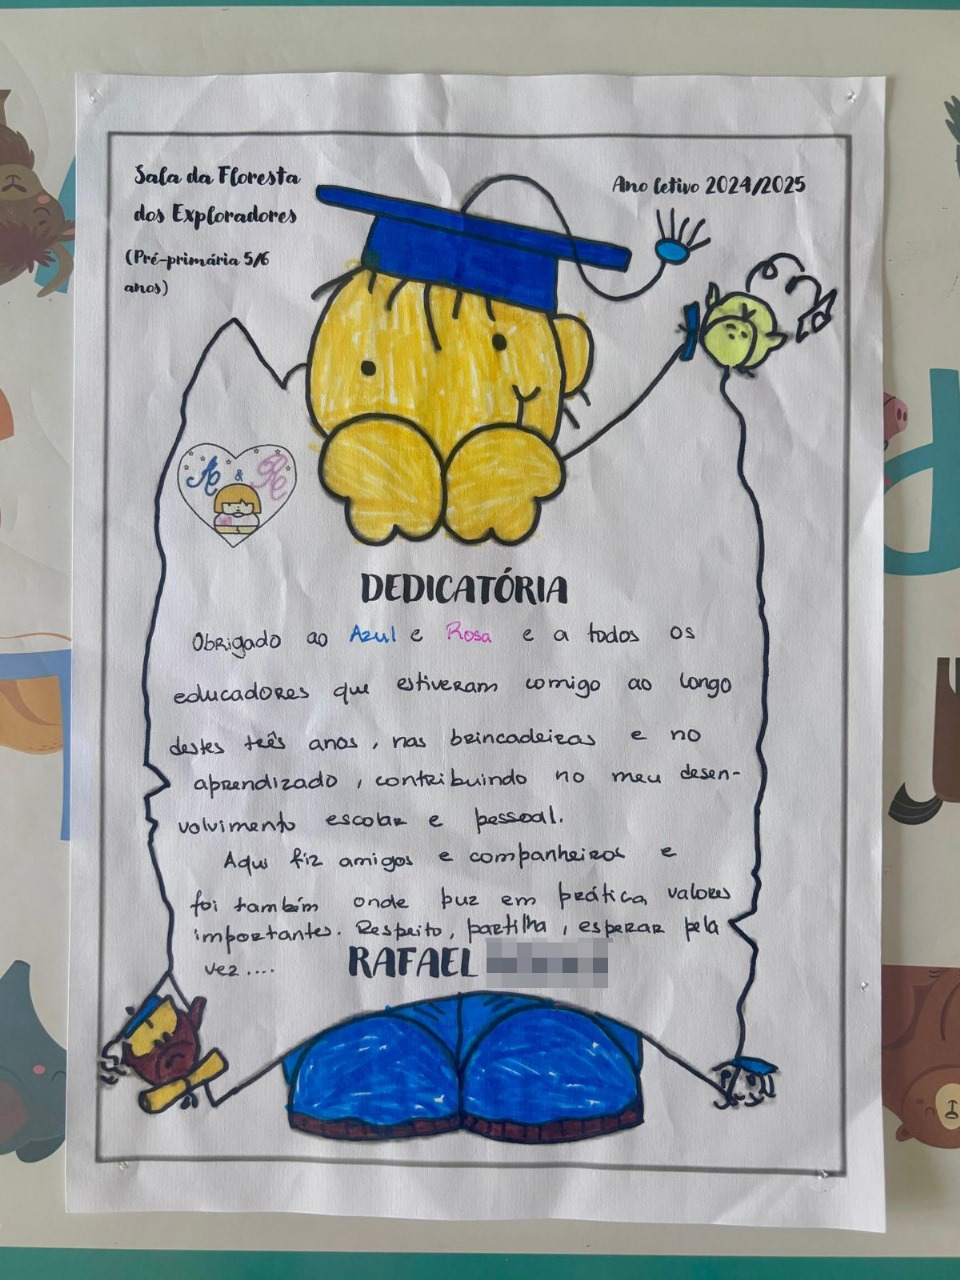 Sala da Floresta
dos Exploradores
(Pré-primária 5/6
anos)
Ano letivo 2024/2025
A & R
DEDICATÓRIA
Obrigado ao Azul e Rosa e a todos os
educadores que estiveram comigo ao longo
destes três anos, nas brincadeiras e no
aprendizado, contribuindo no meu desen-
volvimento escolar e pessoal.
Aqui fiz amigos e companheiros e
foi também onde puz em prática valores
importantes. Respeito, partilha, esperar pela
vez....
RAFAEL